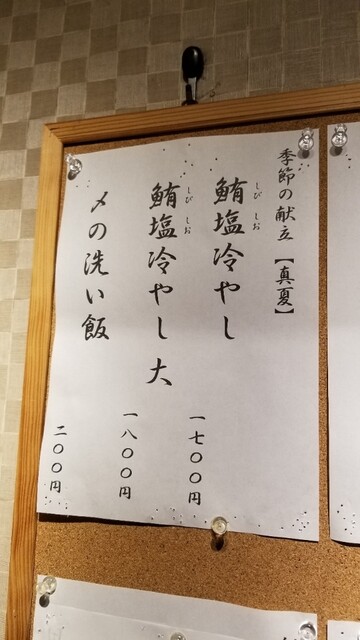 季節の献立【真夏】
鮪塩冷やし
しび しお
一七〇〇円
鮪塩冷やし 大
しび しお
一八〇〇円
〆の洗い飯
二〇〇円